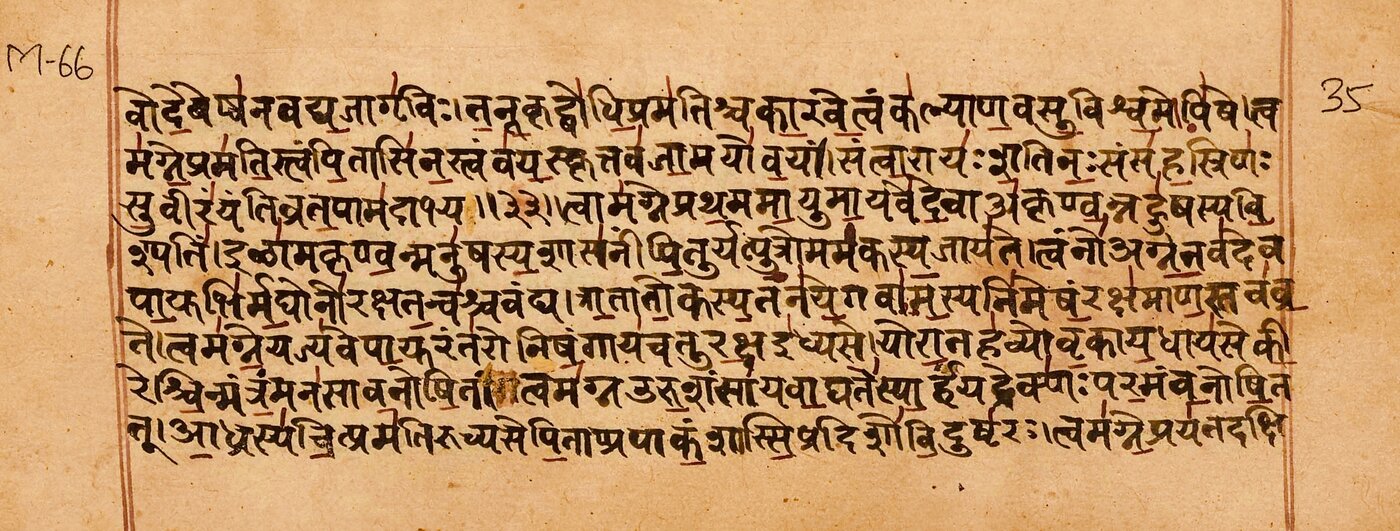 M-66
35
वो दे॒वेष्व॑नवद्य॒ जागृ॑विः । त॒नू॒कृद्बो॑धि॒ प्रम॑तिश्च का॒रवे॒ त्वं क॑ल्याण॒ वसु॒ विश्व॒मोपि॑षे । त्व
म॑ग्ने॒ प्रम॑ति॒स्त्वं पि॒तासि॑ न॒स्त्वं व॑य॒स्कृत्तव॑ जा॒मयो॑ व॒यं ॥ सं त्वा॒ रायः॑ श॒तिनः॒ सं स॑ह॒स्रिणः॑
सु॒वीरं॑ यंति व्रत॒पाम॑दाभ्य ॥ ३३ ॥ त्वाम॑ग्ने प्रथ॒ममा॒युमा॒यवे॑ दे॒वा अ॑कृण्व॒न्नहु॑षस्य वि॒
श्पतिं॑ । इळा॑मकृण्व॒न्मनु॑षस्य॒ शास॑नीं पि॒तुर्यत्पु॒त्रो मम॑कस्य॒ जाय॑ते । त्वं नो॑ अग्ने॒ तव॑ देव
पा॒युभि॑र्म॒घोनो॑ रक्ष त॒न्व॑श्च वंद्य । त्रा॒ता तो॒कस्य॒ तन॑ये॒ गवा॑म॒स्यनि॑मेषं॒ रक्ष॑माण॒स्तव॑ व्र॒
ते । त्वम॑ग्ने॒ यज्य॑वे पा॒युरंत॑रो निषं॒गाय॑ चतुर॒क्ष इ॑ध्यसे । यो रा॒तह॑व्योऽवृ॒काय॒ धाय॑से की॒
रेश्चि॒न्मंत्रं॒ मन॑सा व॒नोषि॒ तं । त्वम॑ग्न उरु॒शंसा॑य वा॒घते॑ स्पा॒र्हं यद्रेक्णः॑ पर॒मं व॒नोषि॒ त
त् । आ॒ध्रस्य॑ चि॒त्प्रम॑तिरुच्यसे पि॒ता प्र पाकं॒ शास्सि॒ प्र दिशो॑ वि॒दुष्ट॑रः । त्वम॑ग्ने॒ प्रय॑तदक्षि